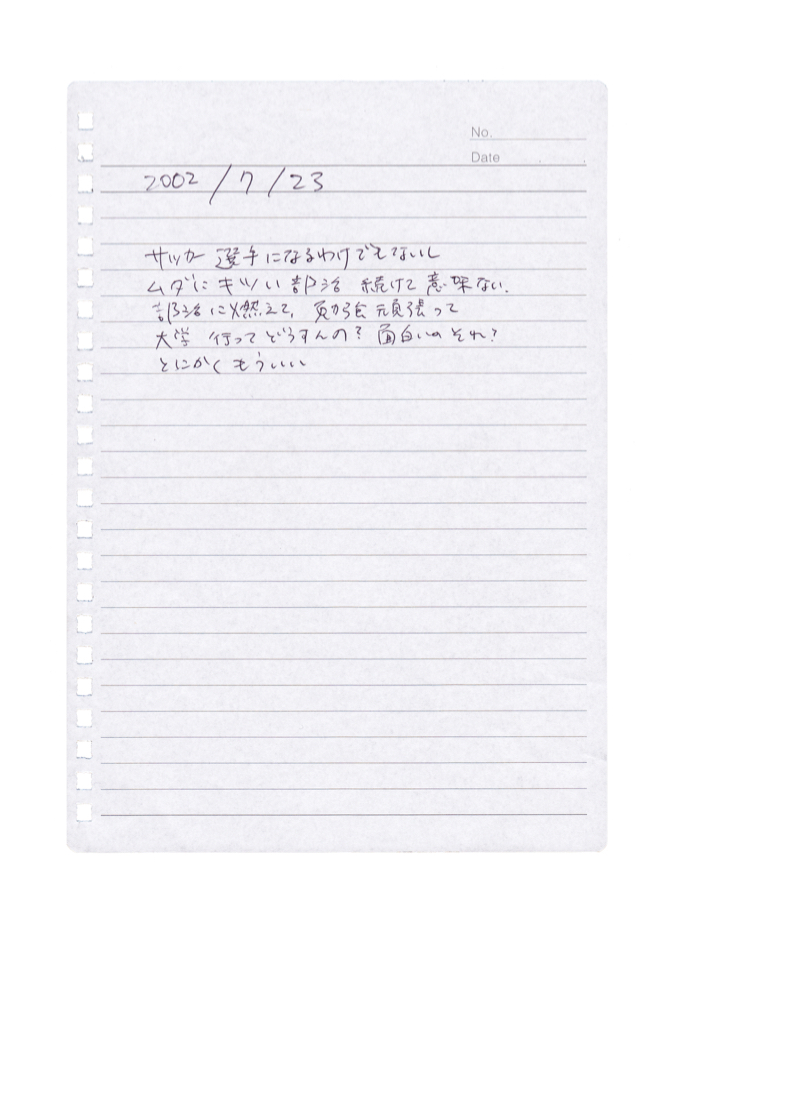 No.
Date
2002/7/23
サッカー選手になるわけでもないし
ムダにキツい部活 続けて意味ない.
部活に燃えて、勉強頑張って
大学 行ってどうすんの? 面白いの それ?
とにかくもういい